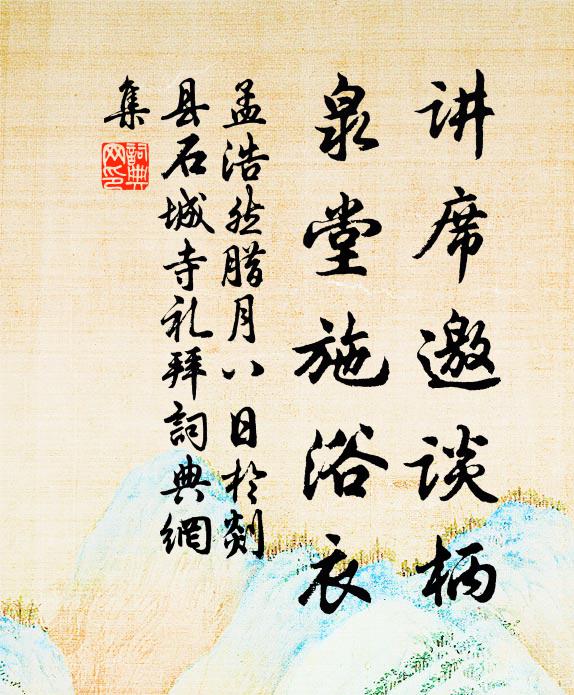 讲席邀谈柄
泉堂施浴衣
孟浩然腊月八日於剡
县石城寺礼拜詞典網
集
詞典網印